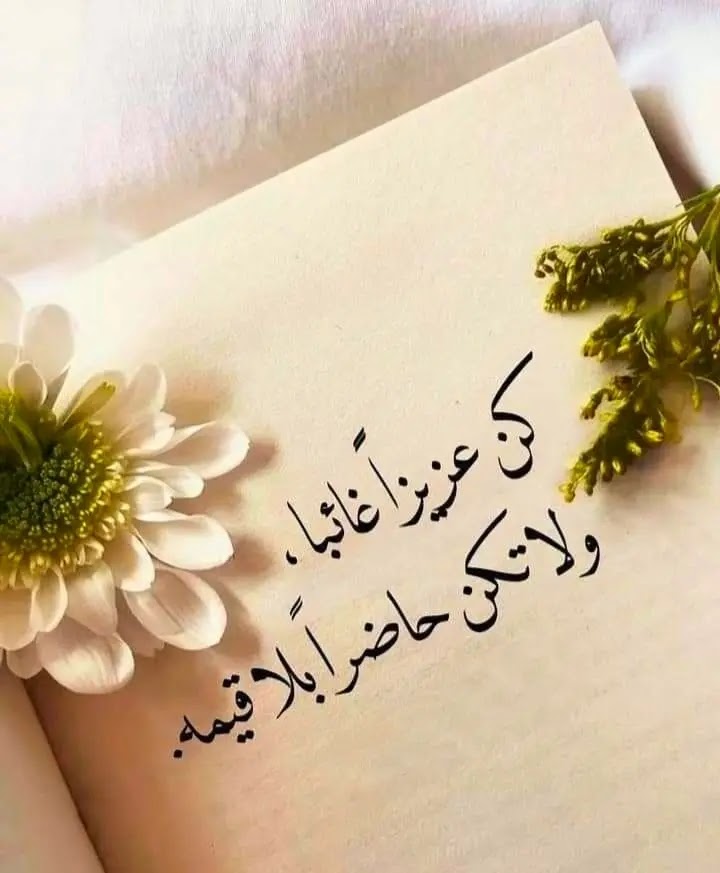 كن عزيزاً غائبا،
ولا تكن حاضراً بلا قيمه.